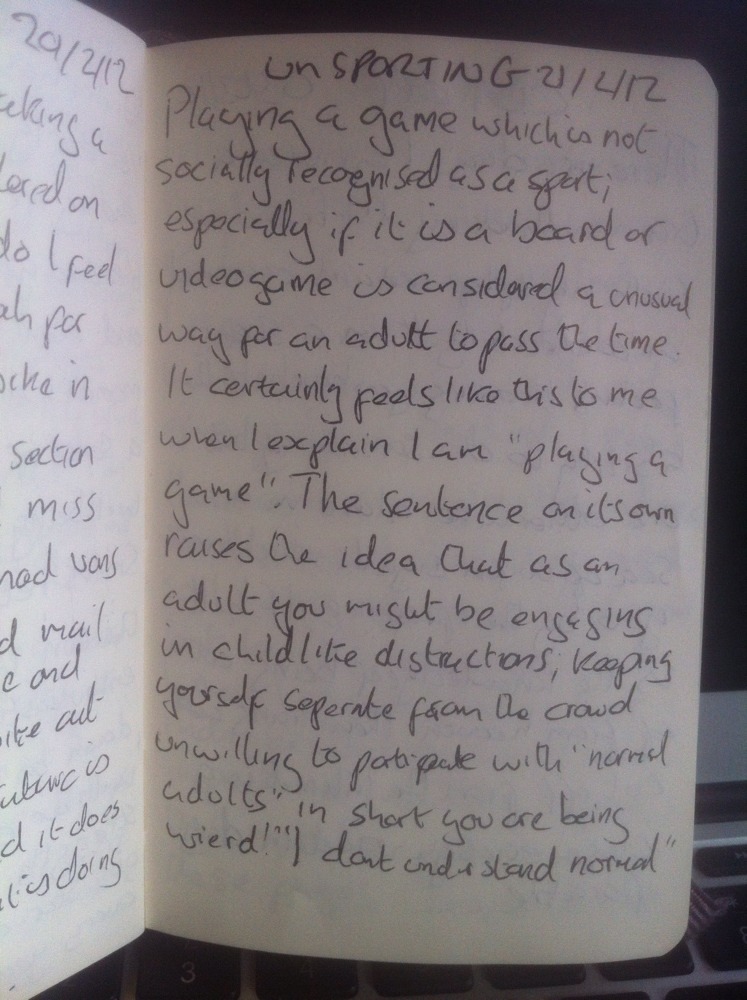 20/2/12
aking a
ered on
do I feel
ah for
ocke in
section
miss
nad vans
d mail
e and
ike out
uture is
d it does
doing
unSPORTING 21/2/12
Playing a game which is not
socially recognised as a sport;
especially if it is a board or
videogame is considered a unusual
way for an adult to pass the time.
It certainly feels like this to me
when I explain I am "playing a
game". The sentence on its own
raises the idea that as an
adult you might be engaging
in childlike distructions, keeping
yourself seperate from the crowd
unwilling to partipate with "normal
adults" in short you are being
wierd! "I dont understand normal"
3